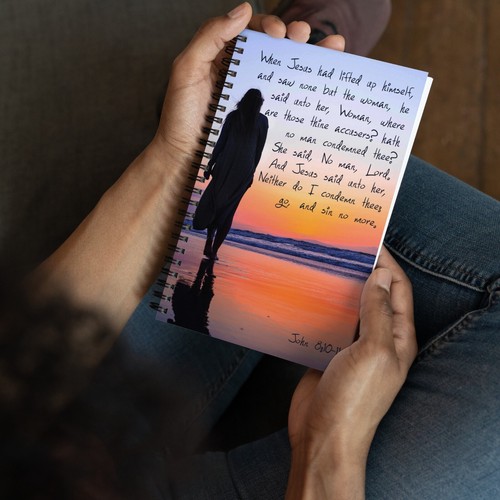 When Jesus had lifted up himself,
and saw none but the woman, he
said unto her, Woman, where
are those thine accusers? hath
no man condemned thee?
She said, No man, Lord.
And Jesus said unto her,
Neither do I condemn thee:
go, and sin no more.
John 8:10-11